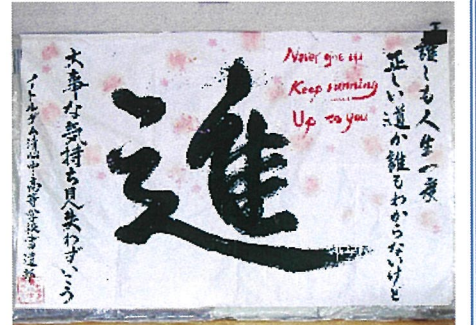 誰しも人生一度
正しい道か誰もわからないけど
Never give up
Keep running
Up to you
進
大事な気持ち見失わずいこう
ノートルダム清心中・高等学校書道部